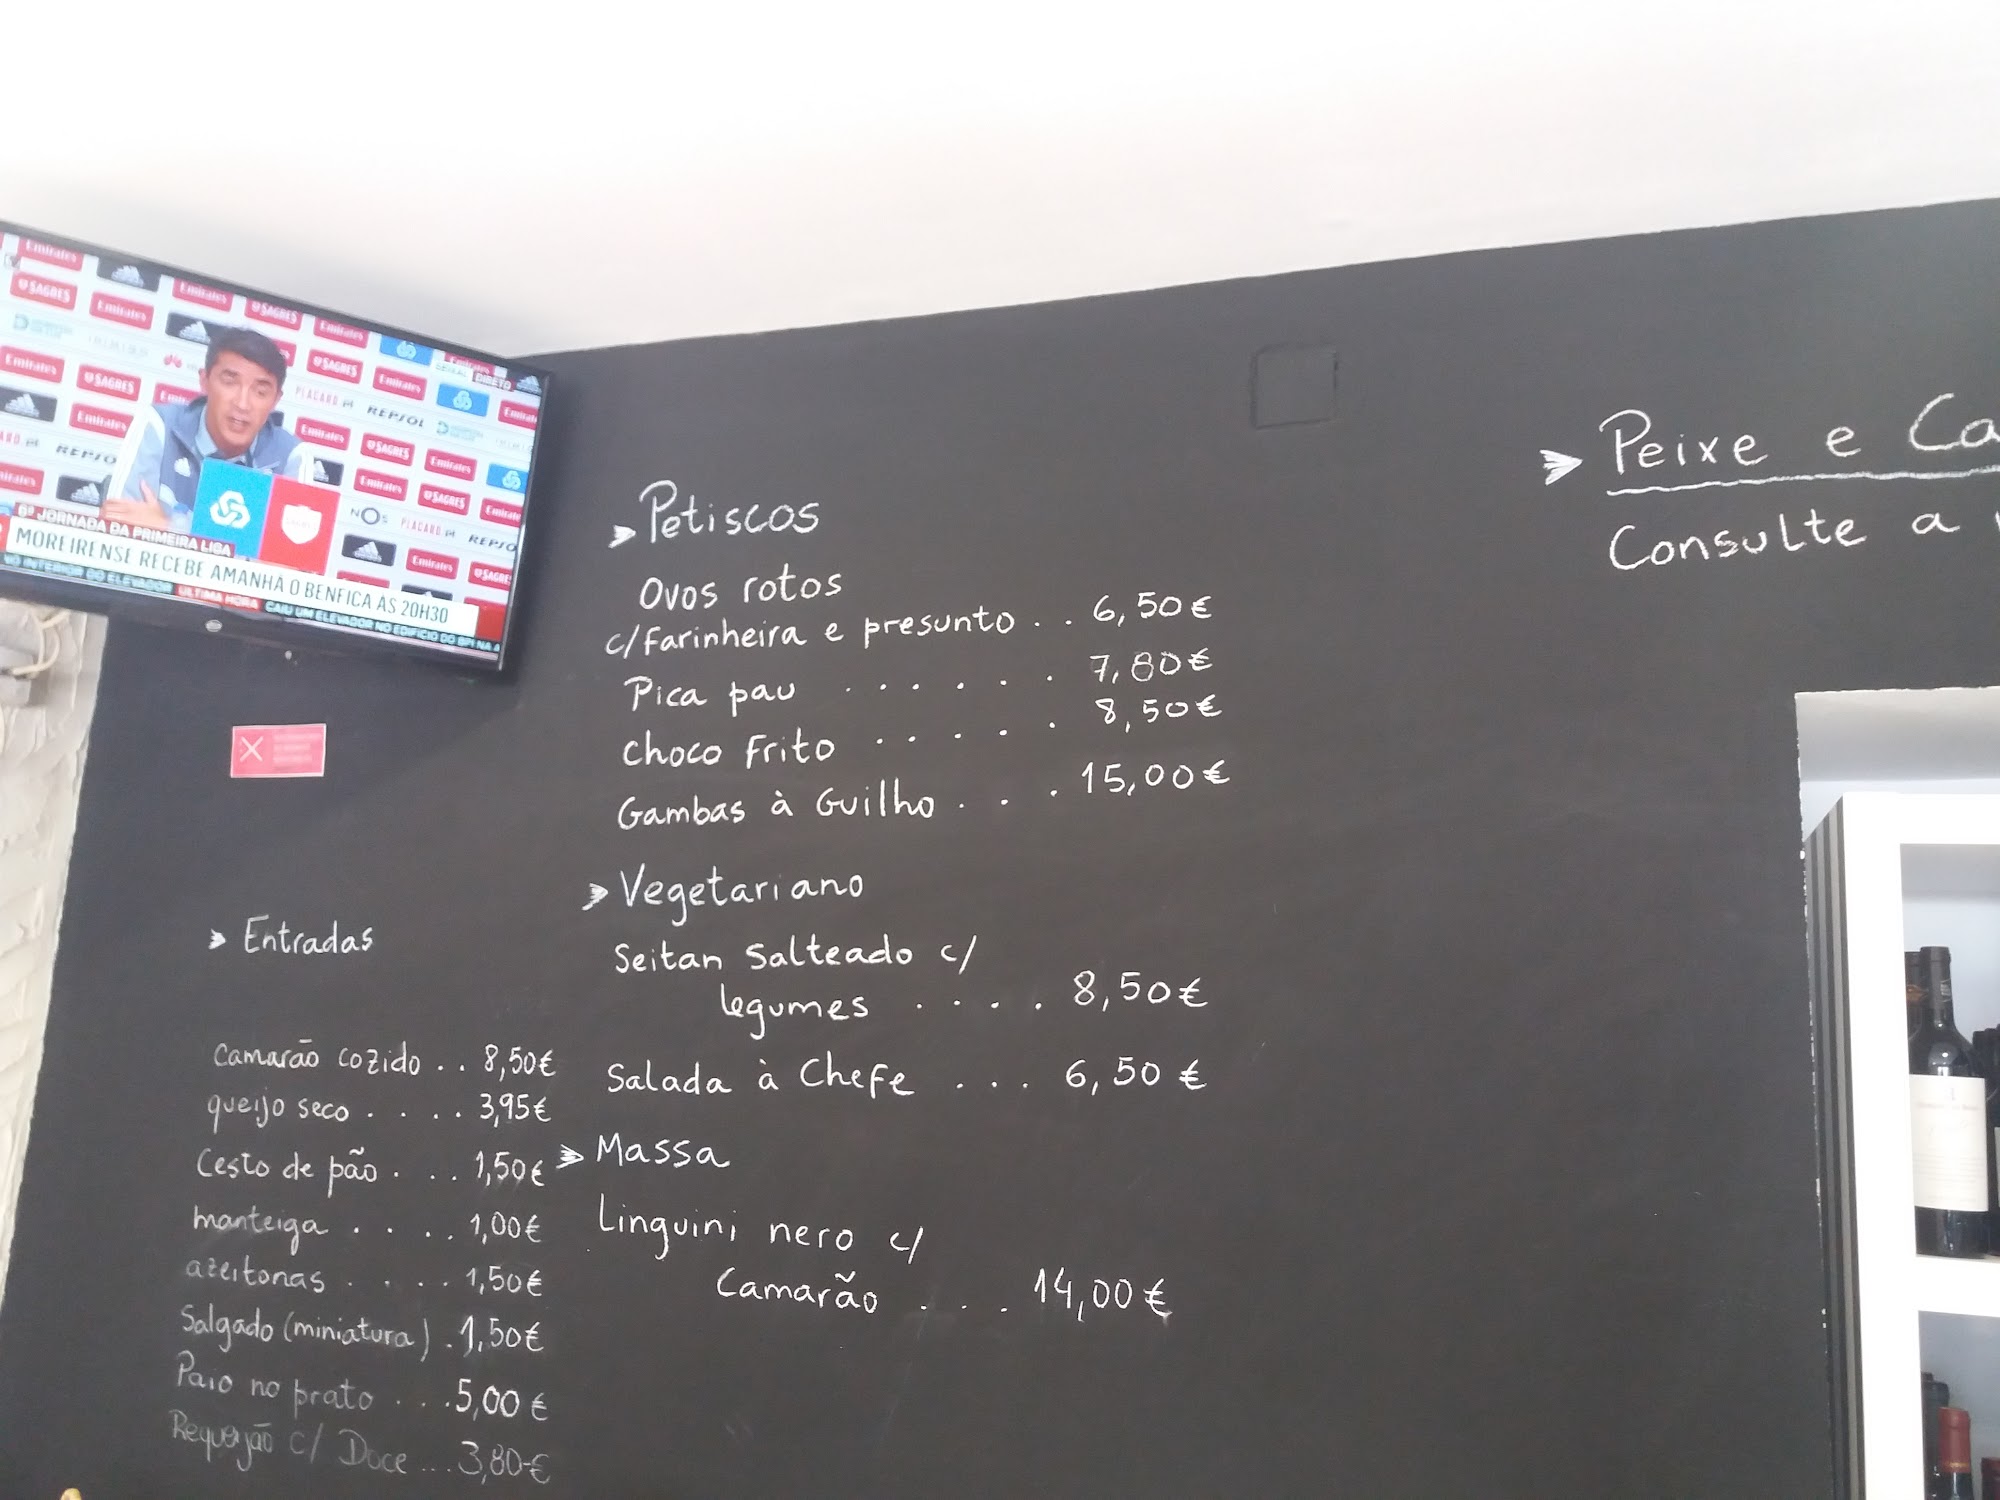 Emirates
SAGRES
Emirates
Emirates
SAGRES
Emirates
SAGRES
Emirates
SAGRES
Emirates
PLACARD
REPSOL
SEIXAL DIRETO
Emirates
SAGRES
Emirates
Emirates
SAGRES
NOS
PLACARD
REPSOL
Emirates
SAGRES
6ª JORNADA DA PRIMEIRA LIGA
MOREIRENSE RECEBE AMANHÃ O BENFICA ÀS 20H30
NO INTERIOR DO ELEVADOR ÚLTIMA HORA CAIU UM ELEVADOR NO EDIFÍCIO DO BPI NA A
Entradas
Camarão cozido . . 8,50€
queijo seco . . . . 3,95€
Cesto de pão . . . 1,50€
manteiga . . . . 1,00€
azeitonas . . . . 1,50€
Salgado (miniatura) . 1,50€
Paio no prato . . . . 5,00€
Requeijão c/ Doce ... 3,80€
Petiscos
Ovos rotos
c/Farinheira e presunto . . 6,50€
Pica pau . . . . . . 7,80€
Choco Frito . . . . . 8,50€
Gambas à Guilho . . . 15,00€
Vegetariano
Seitan Salteado c/
legumes . . . . 8,50€
Salada à Chefe . . . 6,50€
Massa
Linguini nero c/
Camarão . . . 14,00€
Peixe e Ca
Consulte a